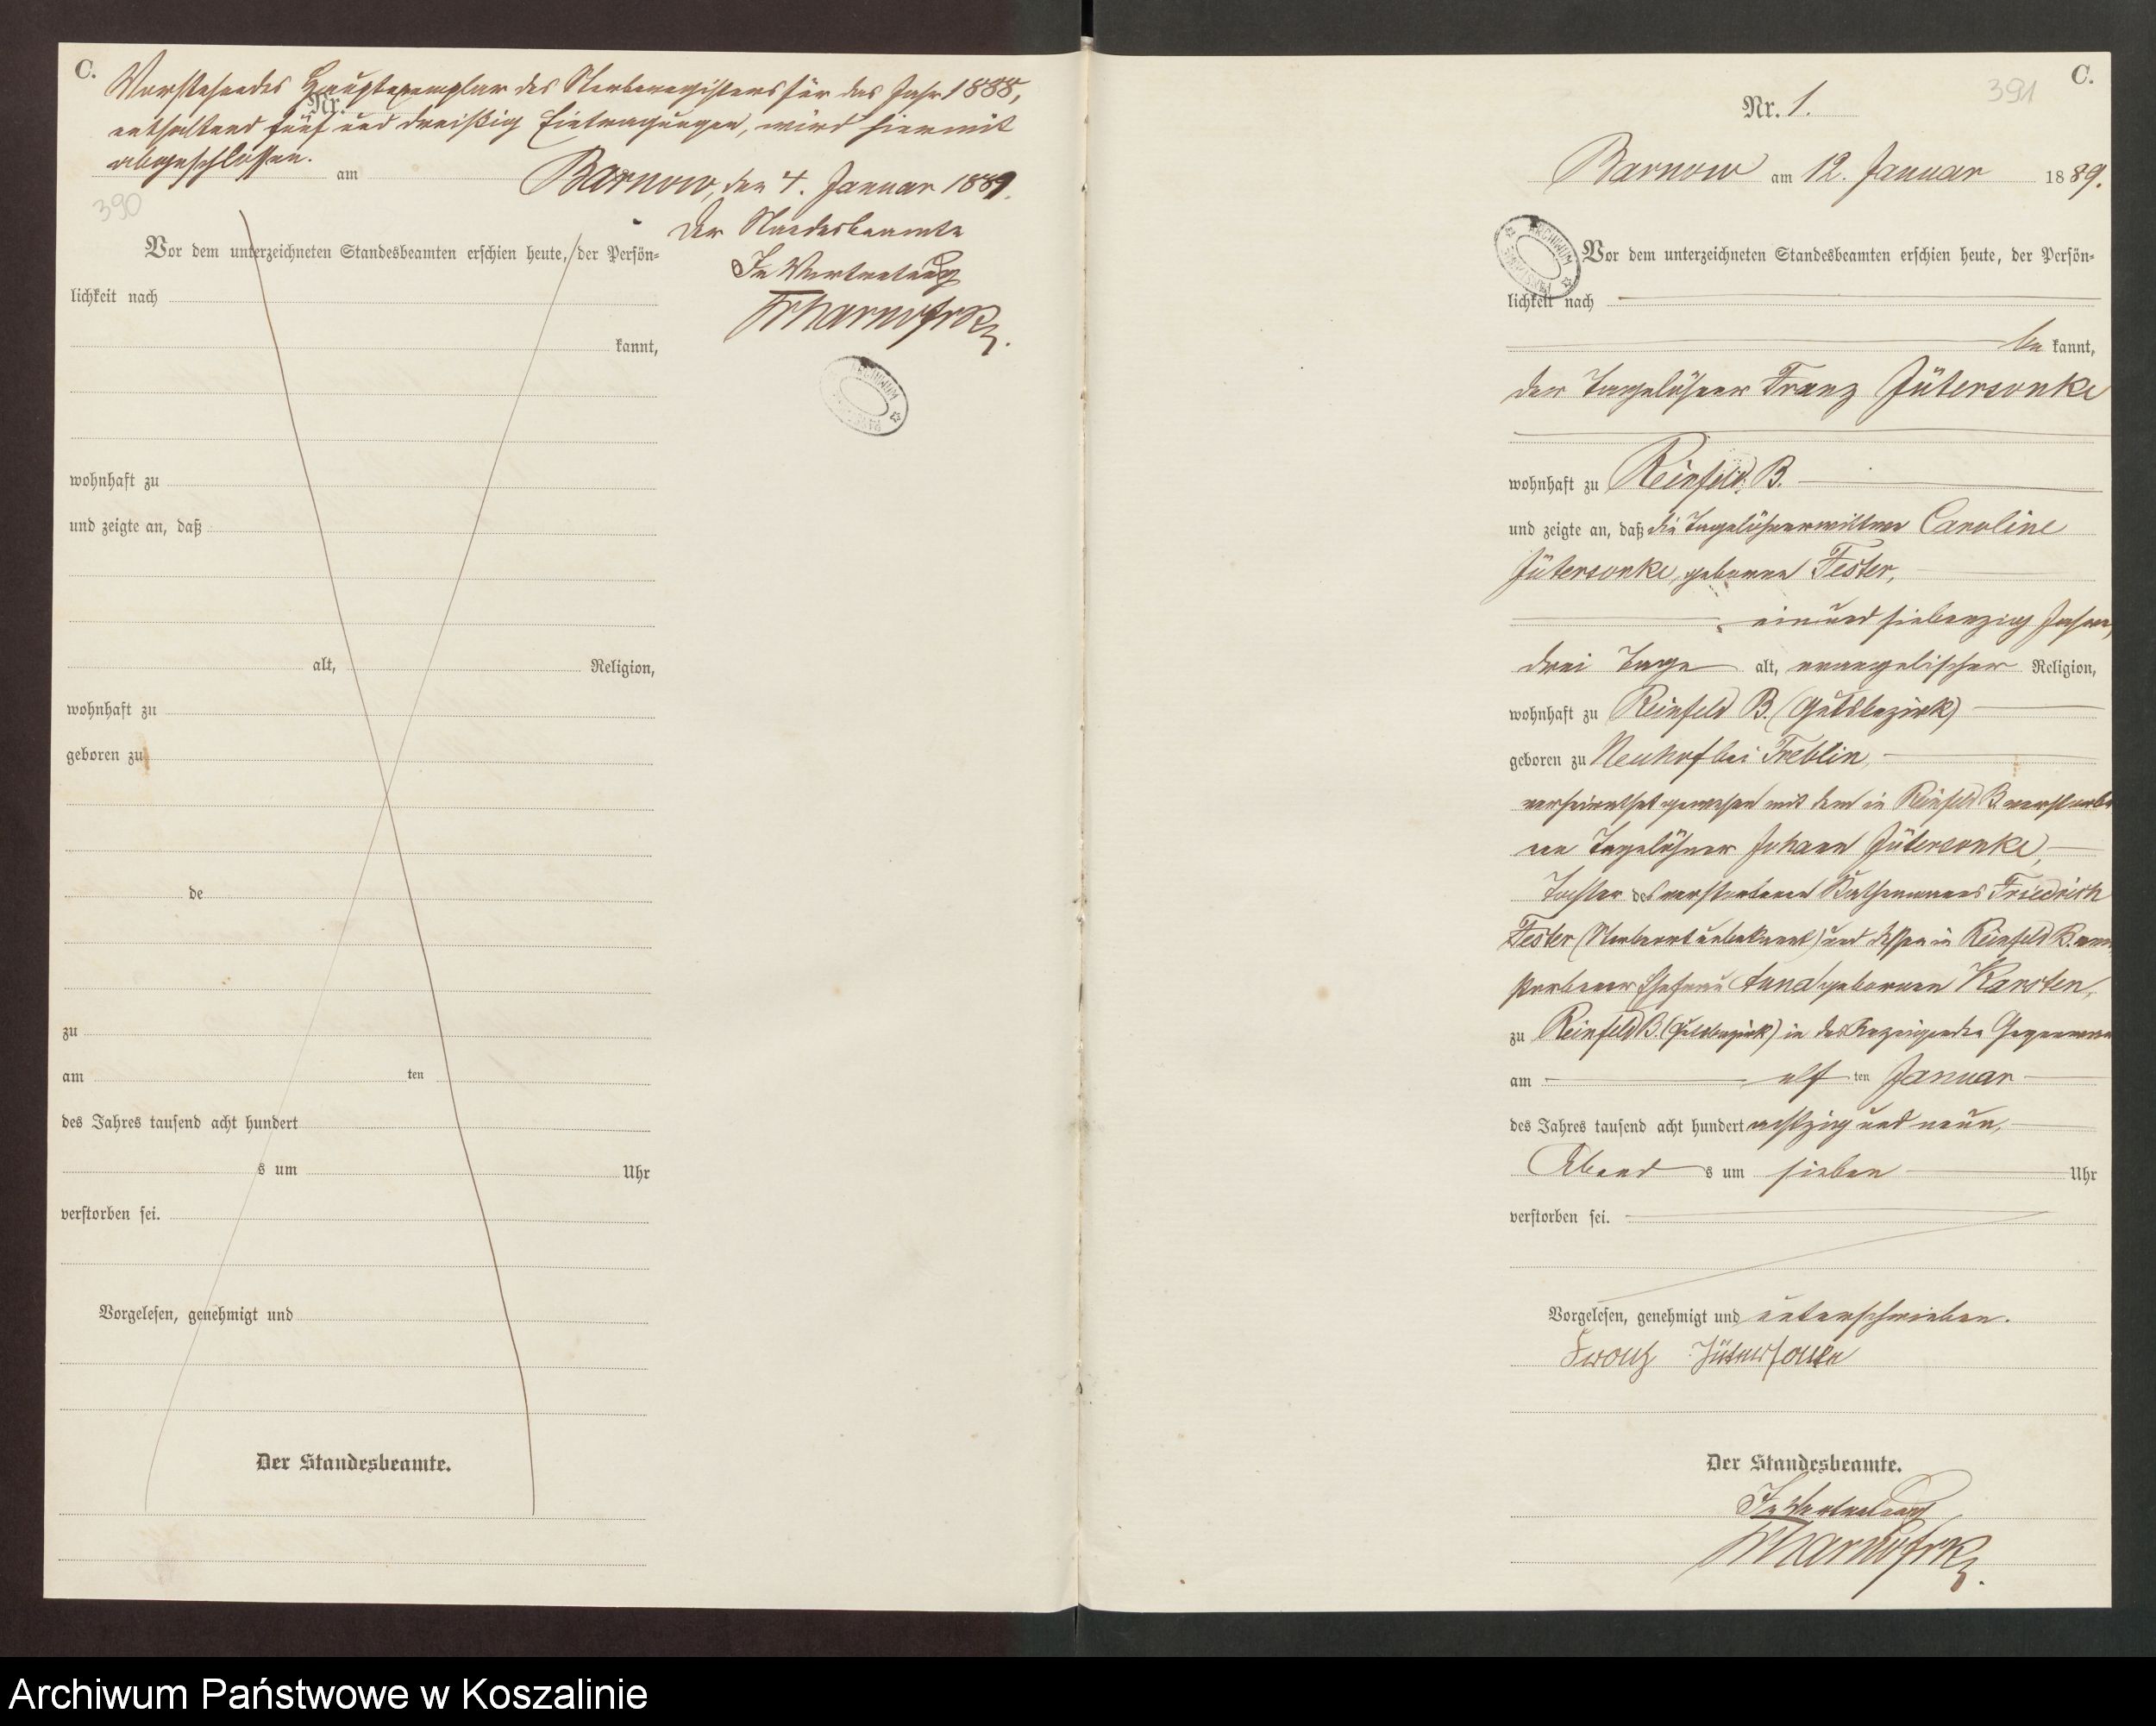 C.
Vorstehendes Hauptexemplar des Sterberegisters für das Jahr 1888,
Nr.
enthaltend fünf und dreißig Eintragungen, wird hiermit
abgeschlossen.
am
Barnow, den 4. Januar 1889.
390
Der Standesbeamte
In Vertretung
Vor dem unterzeichneten Standesbeamten erschien heute, der Persön-
lichkeit nach
kannt,
ARCHIWUM
wohnhaft zu
und zeigte an, daß
alt, Religion,
wohnhaft zu
geboren zu
de
zu
am ten
des Jahres tausend acht hundert
s um Uhr
verstorben sei.
Vorgelesen, genehmigt und
Der Standesbeamte.
C.
391
Nr. 1.
Barnow am 12. Januar 1889.
ARCHIWUM
Vor dem unterzeichneten Standesbeamten erschien heute, der Persön-
lichkeit nach
be kannt,
der Tagelöhner Franz Jütersonke
wohnhaft zu Reinfeld B.
und zeigte an, daß die Tagelöhnerwittwe Caroline
Jütersonke, geborene Fester,
einund siebenzig Jahre,
drei Tage alt, evangelischer Religion,
wohnhaft zu Reinfeld B. (Gutsbezirk)
geboren zu Neuhof bei Treblin,
verheirathet gewesen mit dem in Reinfeld B verstorbe
nen Tagelöhner Johann Jütersonke,
Tochter des verstorbenen Kathenmannes Friedrich
Fester (Sterbeort unbekannt) und dessen in Reinfeld B. ver
storbener Ehefrau Anna geborenen Karsten,
zu Reinfeld B. (Gutsbezirk) in des Anzeigenden Gegenwart
am elf ten Januar
des Jahres tausend acht hundert achtzig und neun,
Abend s um sieben Uhr
verstorben sei.
Vorgelesen, genehmigt und unterschrieben.
Franz Jütersonke
Der Standesbeamte.
In Vertretung
Archiwum Państwowe w Koszalinie